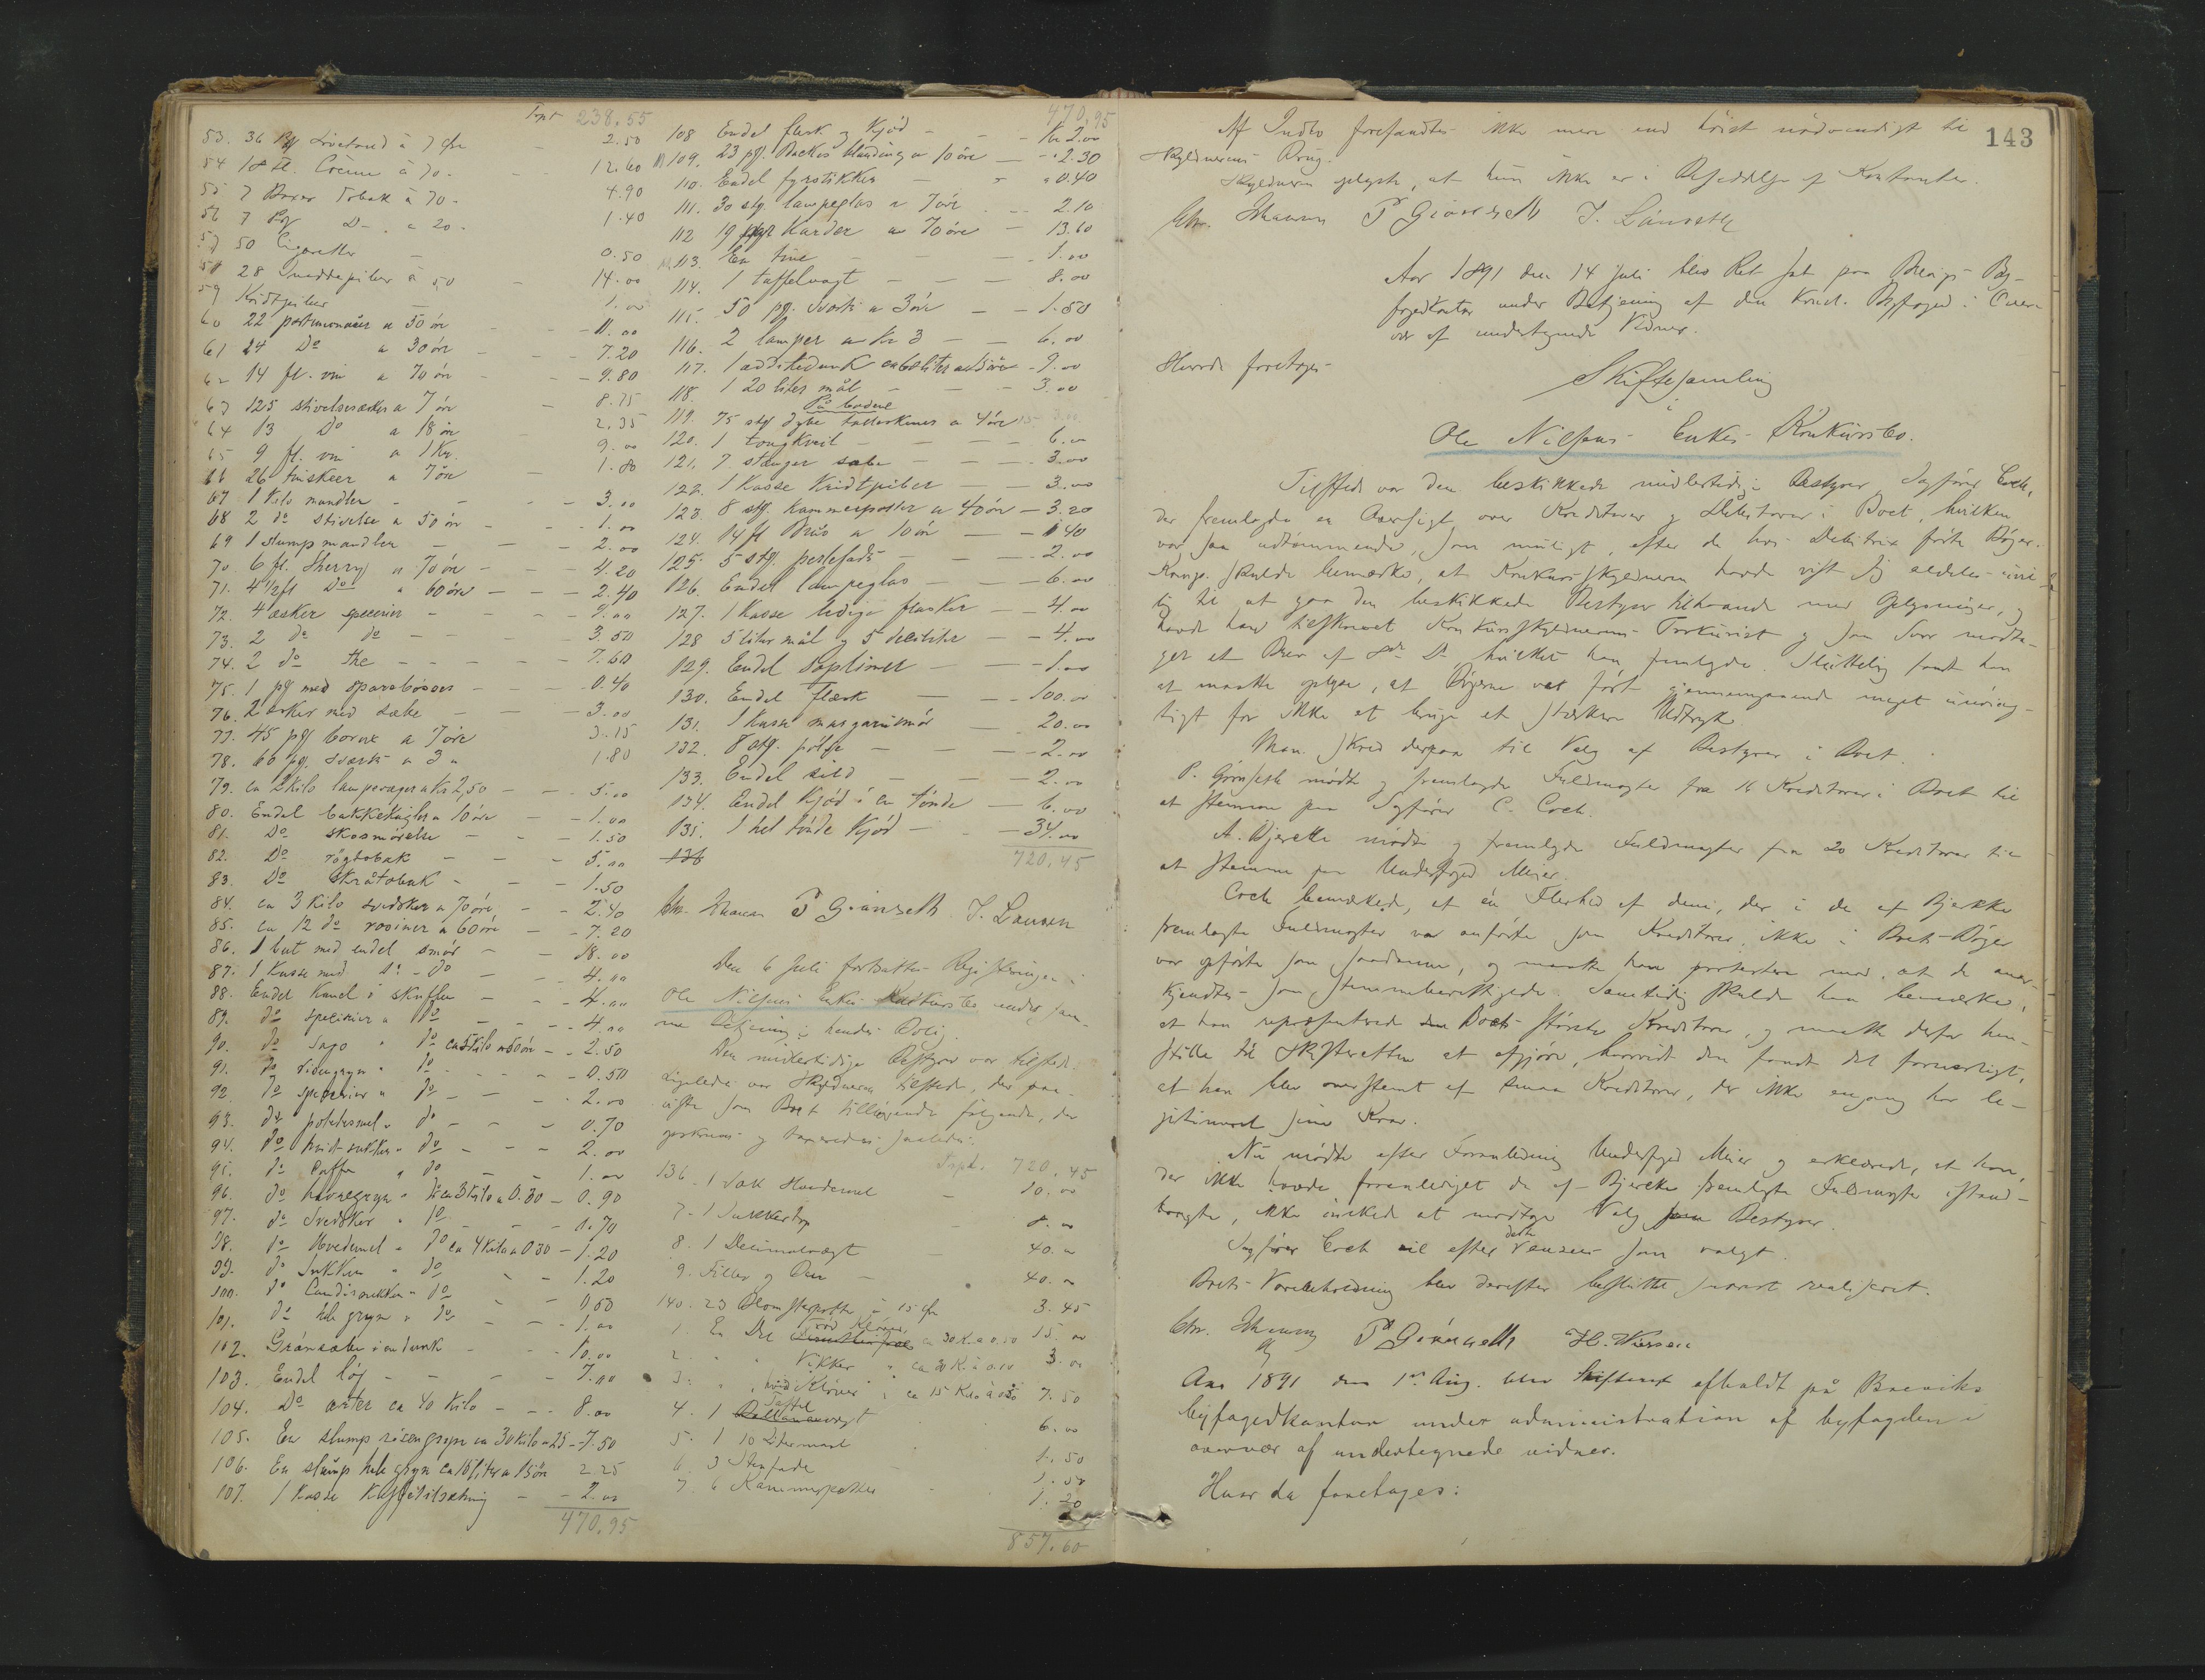 Trpt 238.55
53. 36 Pg Livetand à 7 Øre - 2.50
54 18 fl. Creme à 70 - - 12.60
55 7 Boxer Tobak à 70 - 4.90
56 7 Pg D - à 20 - 1.40
57 50 Cigaretter - 0.50
58 28 Snaddepiber à 50 - 14.00
59 Kridtpiber - 1.00
60 22 portmonnaier a 50 öre - - 11.00
61 24 Do a 30 öre - - 7.20
62 14 fl. vin a 70 öre - - 9.80
63 125 stivelsesæsker a 7 öre - 8.75
64 13 Do a 18 öre 2.35
65 9 fl. vin a 1 Kr. 9.00
66 26 tinskeer a 7 öre - 1.80
67 1 Kilo mandler - - - 3.00
68 2 do stivelse a 50 öre - - 1.00
69 1 slump mandler - - - 2.00
70. 6 fl. Sherry a 70 öre - - 4.20
71. 4 1/2 fl Do a 60 öre - - - 2.40
72. 4 æsker specerier - - -
73. 2 do do - - - - 3.50
74. 2 do the - - - - 7.60
75. 1 pg med sparebösser - - - 0.40
76. 2 æsker med sæbe - - - 3.00
77. 45 pg borax a 7 öre 3.15
78. 60 pg. sværte a 3 " 1.80
79. ca 2 kilo lampevæger a Kr 2,50 - - 5.00
80. Endel bakkekugler a 10 öre - - 1.00
81. Do skosmörelse - - - 1.50
82. Do rögtobak - - - 5.00
83. Do Skråtobak - - - 1.50
84. ca 3 kilo svedsker a 70 öre - - 2.40
85. ca 12 do rosiner a 60 öre - - 7.20
86. 1 but med endel smör - - 18.00
87. 1 Kasse med do - do - - 4.00
88. Endel Kanel i skuffen - - - 4.00
89. do specerier " do - - - 4.00
90. do Sago " do ca 5 kilo a 50 öre - - 2.50
91. do risengryn " do - - - - 0.50
92. do specerier " do - - - 2.00
93. do potetesmel " do - - - 0.70
94. do hvidt sukker " do - - - 2.00
95. do Caffe " do - - 1.00
96. do havregryn " do ca 3 kilo a 0.30 - 0.90
97. do Svedsker " do - - - 0.70
98. do Hvedemel " do ca 4 kilo a 0 30 - 1.20
99. do Sukker " do - - 1.20
100. do Candissukker " do - - 0.50
101. do hele gryn " do - - - 1.00
102. Grönsæbe i en dunk - - - 10.00
103. Endel lög - - - - 7.00
104. Do erter ca 40 kilo - - - 8.00
105. En slump risengryn ca 30 kilo a 25 - 7.50
106. En slump hele gryn ca 15 liter a 15 öre 2.25
107. 1 Kasse Kaffetilsætning - - 2.00
470.95
470.95
108 Endel flesk og Kjød - - - Kr 2.00
109. 23 pg. Backes blanding a 10 öre - - 2.30
110. Endel fyrstikker - - " 0.40
111. 30 stg. lampeglas a 7 öre - - 2.10
112 19 Karder a 70 öre - 13.60
113. En tine - - - 1.00
114. 1 taffelvægt - - - 8.00
115. 50 pg. Sværte a 3 öre - - 1.50
116. 2 lamper a Kr 3 - - 6.00
117. 1 eddikedunk ca 60 liter a 15 öre - 9.00
118. 1 20 liter mål - - - 3.00
På bodene
119. 75 stg dybe tallerkener a 4 öre 3.00
120. 1 tougkveil - - - - 6.00
121. 7 stænger sæbe - - - 3.00
122. 1 Kasse Kridtpiber - - 3.00
123. 8 stg. Kammerpotter a 40 öre - 3.20
124. 14 fl Brus a 10 öre - - 1 40
125. 5 stg. - - - 2.00
126. Endel lampeglas - - - 6.00
127. 1 kasse ledige flasker - - 4.00
128 5 liter mål og 5 deciliter - - 4.00
129. Endel - - - 1.00
130. Endel Flæsk - - - 100.00
131. 1 Kasse margarinsmör - 20.00
132. 8 stg. pölse - - - 2.00
133. Endel sild - - - 2.00
134. Endel Kjöd i en tönde - 6.00
135. 1 hel tönde Kjöd - - 34.00
136 720.45
Chr. Johansen P Giönseth J. Larsen
Den 6 Juli fortsattes Registeringen i
Ole Nilsens Enkes Konkursbo under sam-
me Betjening i hendes Bolig.
Den midlertidige Bestyrer var tilstede.
Ligeledes var Skyldneren tilstede, der paa-
viste som Boet tilhörende fölgende, der
opskreves og taxeredes saaledes:
Trpt. 720.45
136. 1 Sæk Havremel - 10.00
7 - 1 Sukkertop 8.00
8. 1 Decimalvægt - 40.00
9. Filler og Been - 40.00
140. 23 Blomsterpotter à 15 Øre 3.45
röd Klöver,
1. En Del ca 30 K. à 0.50 15.00
2. " " Vikker " ca 30 K. à 0.10 3.00
3. " " hvid Klöver " ca 15 Kilo à 0.50 7.50
Taffel
4. 1 6.00
5. 1 10 Litermaal 1.50
6. 3 Stenfade 1.00
7. 6 Kammerpotter 1.20
857.60
143
Af Indbo forefandtes ikke mere end höist nödvendigt til
Skyldnerens Brug.
Skyldneren oplyste, at hun ikke er i Besiddelse af Kontanter.
Chr. Johansen P Giönseth J. Larsen
Aar 1891 den 14 Juli blev Ret sat paa Brevigs By-
fogedkontor under Betjening af den Const. Byfoged i Over-
vær af undertegnede Vidner.
Hvorda foretoges
Skiftesamling
i
Ole Nilsens Enkes Konkursbo.
Tilstede var den beskikkede midlertidige Bestyrer Sagförer Coch,
der fremlagde en Oversigt over Kreditorer og Debitorer i Boet, hvilken
var saa udtömmende, som muligt, efter de hos Debitrix förte Böger.
Komp. skulde bemærke, at Konkursskyldneren havde vist sig aldeles uvil-
lig til at gaa den beskikkede Bestyrer tilhaande med Oplysninger, og
havde han tilskrevet Konkursskyldnerens Prokurist og som Svar modta-
get et Brev af hvilket han fremlagde. Sluttelig fandt han
at maatte oplyse, at Bögerne var fört gjennemgaaende meget unöiag-
tigt for ikke at bruge et stærkere Udtryk.
Man skred derpaa til Valg af Bestyrer i Boet.
P. Giönseth mödte og fremlagde Fuldmagter fra 16 Kreditorer i Boet til
at stemme paa Sagförer C. Coch.
A. Bjercke mödte og fremlagde Fuldmagter fra 20 Kreditorer til
at stemme paa Underfoged Meier.
Coch bemærkede, at en Flerhed af dem, der i de af Bjercke
fremlagte Fuldmagter var anförte som Kreditorer, ikke i Boets Böger
var opförte som saadanne, og maatte han protestere mod, at de aner-
kjendtes som stemmeberettigede. Samtidig skulde han bemærke,
at han repræsenterede Boets störste Kreditorer, og maatte derfor hen-
stille til Skifteretten at afgjöre, hvorvidt den fandt det forsvarligt,
at han blev overstemt af smaa Kreditorer, der ikke engang har le-
gitimeret sine Krav.
Nu mödte efter Foranledning Underfoged Meier og erklærede, at han,
der ikke havde foranlediget de af Bjercke fremlagte Fuldmagter istand-
bragte, ikke önskede at modtage Valg som Bestyrer.
Sagförer Coch vil efter dette ansees som valgt.
Boets Varebeholdning blev derefter besluttet snarest realiseret.
Chr. Johansen P Giönseth H. Nilssen
Aar 1891 den 1ste Aug. blev Skifteret afholdt på Breviks
byfogedkontor under administration af byfogden i
overvær af undertegnede vidner.
Hvor da foretoges: